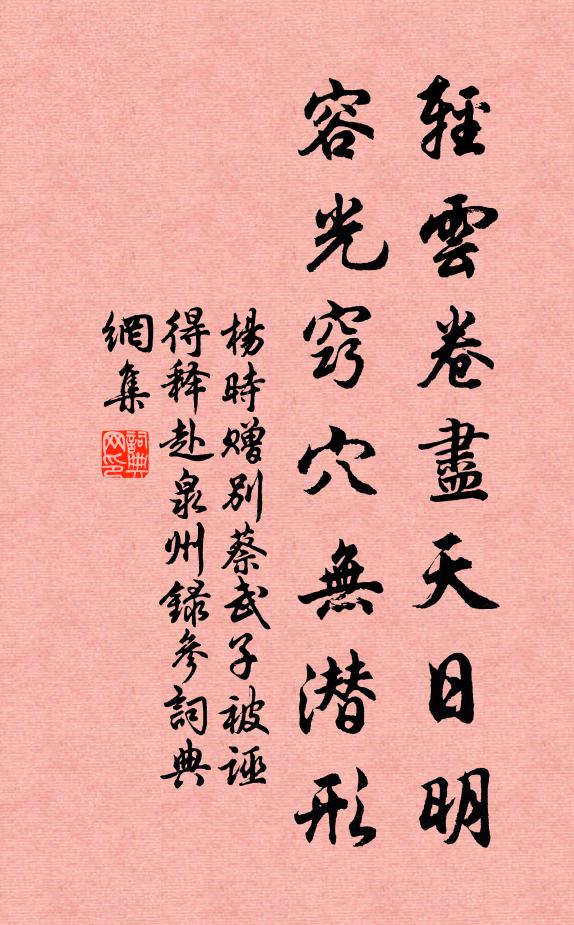 輕雲卷盡天日明
容光窍穴無潜形
楊時赠别蔡武子被誣
得释赴泉州錄參詞典
網集
詞典
网印